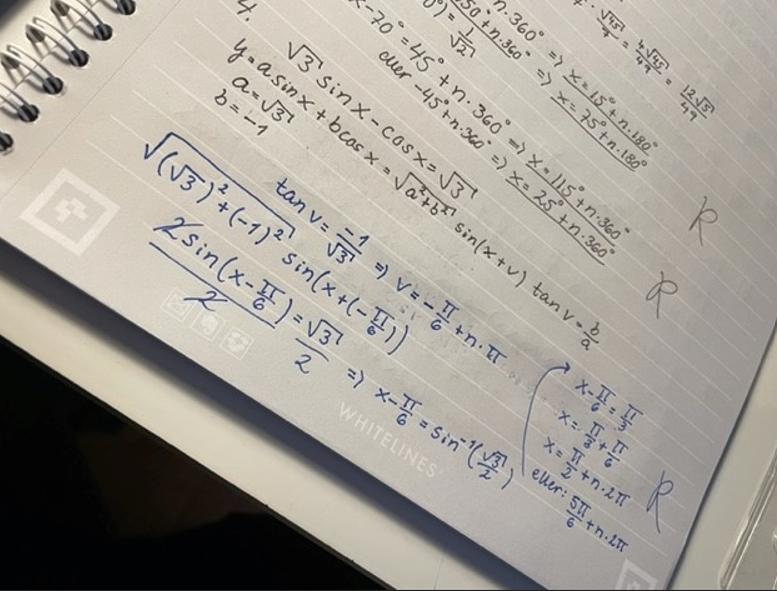 n.360°
· √45/7 = 4√45/49 = 12√5/49
= 1/√2
50°+n.360° => x=15°+n.180°
n.360° => x=75°+n.180°
x-70°=45°+n.360° => x=115°+n.360°
eller -45°+n.360° => x=25°+n.360°
4.
√3 sinx-cosx=√3
y=a.sinx+bcosx=√a²+b² sin(x+v) tanv=b/a
a=√3
b=-1
tanv=-1/√3 => v=-π/6+n.π
√(√3)²+(-1)² sin(x+(-π/6))
2sin(x-π/6)/2=√3/2 => x-π/6=sin⁻¹(√3/2)
x-π/6=π/3
x=π/3+π/6
x=π/2+n.2π
eller: 5π/6+n.2π
R
R
R
WHITELINES®